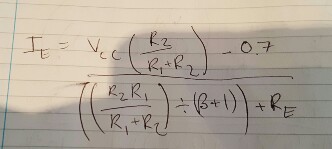 I_E = V_CC (R2 / (R1+R2)) - 0.7
((R2 R1 / (R1+R2)) ÷ (β+1)) + R_E